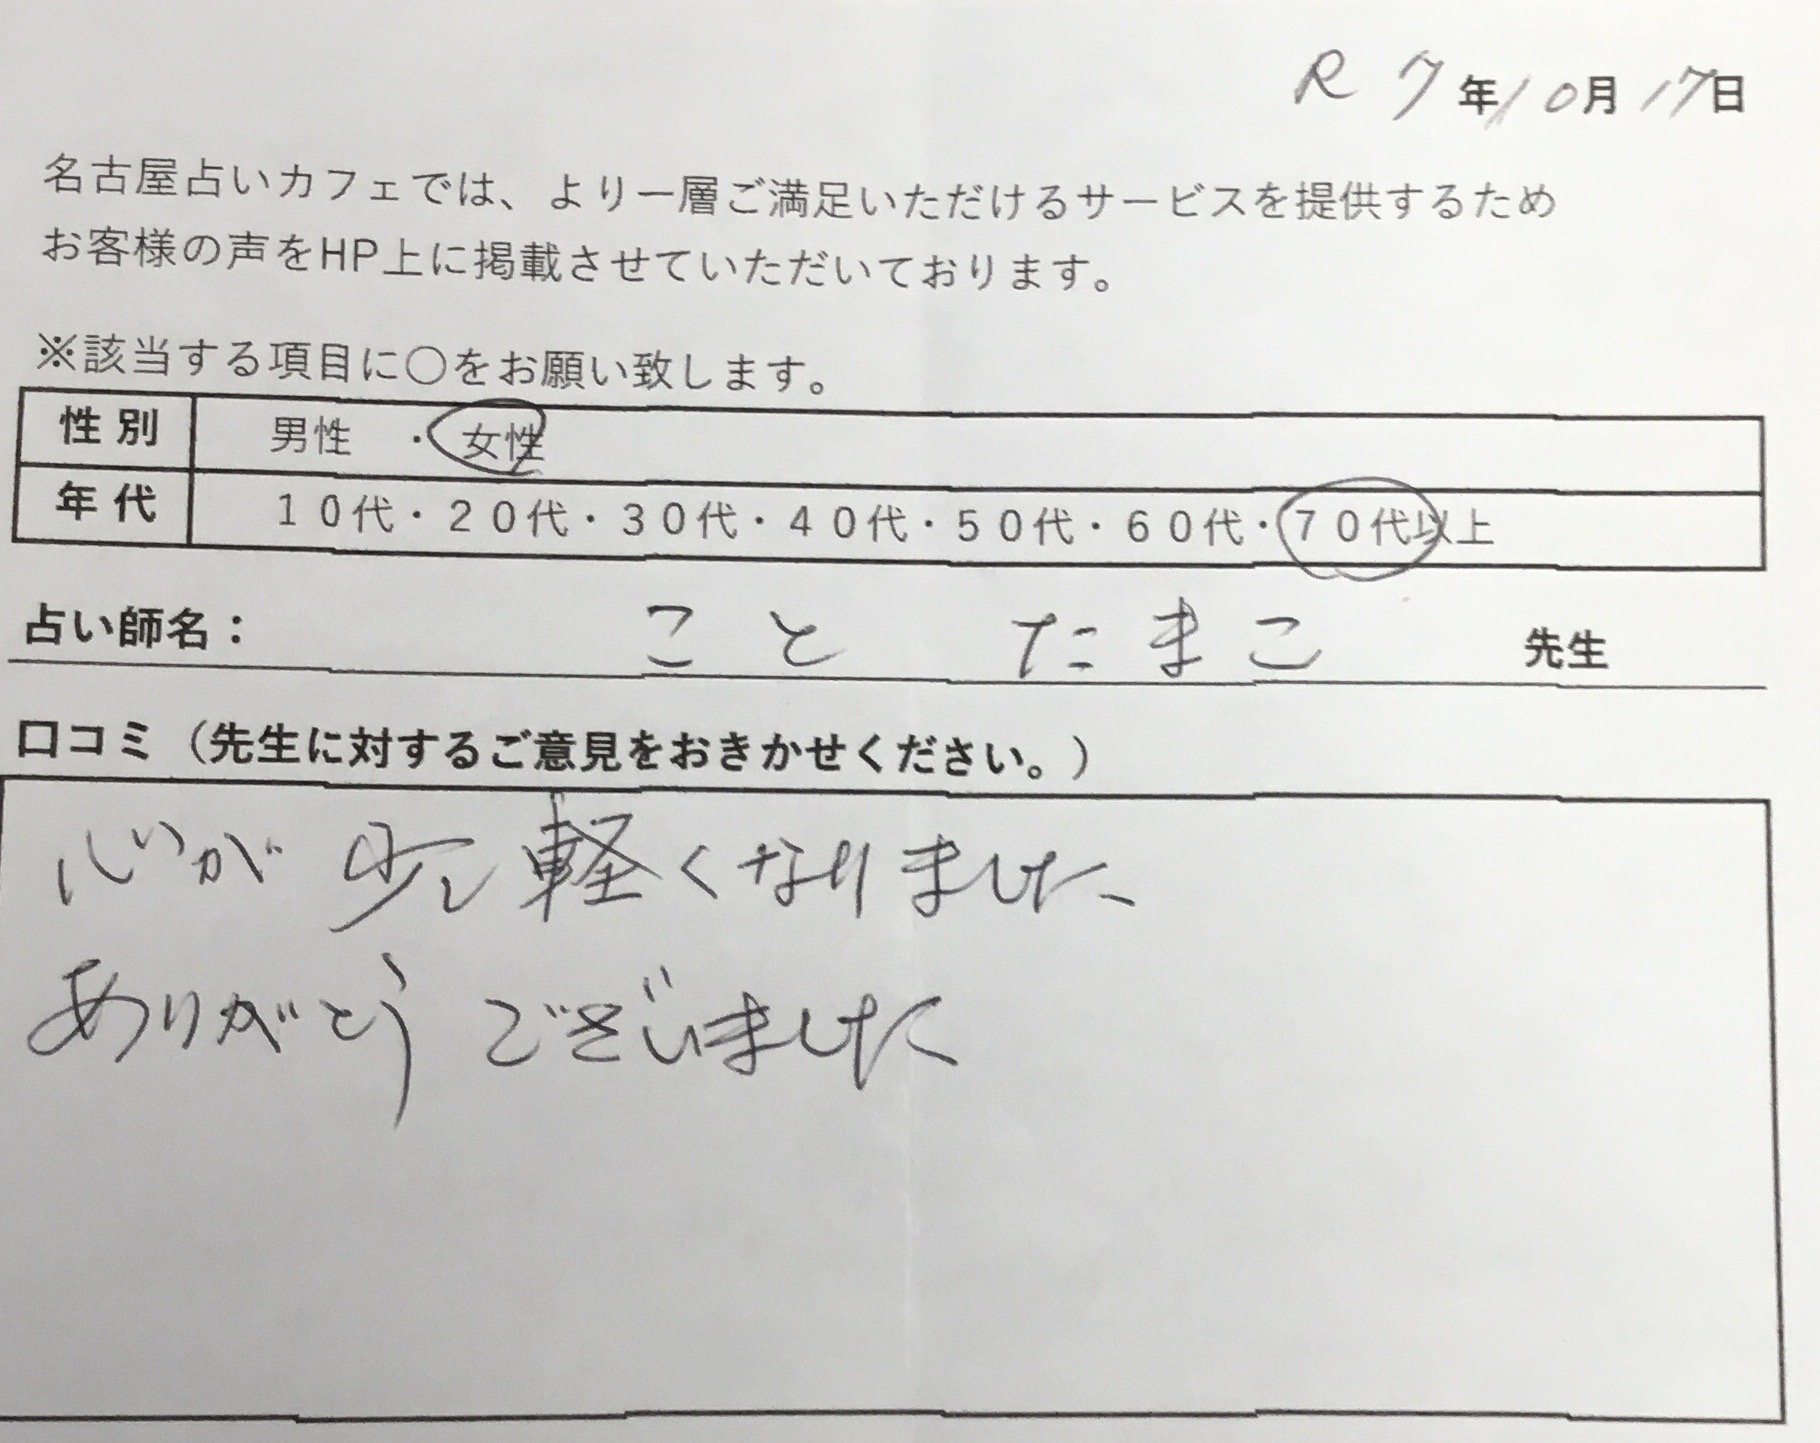 R 7年10月17日
名古屋占いカフェでは、より一層ご満足いただけるサービスを提供するため
お客様の声をHP上に掲載させていただいております。
※該当する項目に〇をお願い致します。
性別 男性 ・ 女性
年代 １０代・２０代・３０代・４０代・５０代・６０代・７０代以上
占い師名： こと たまこ 先生
口コミ（先生に対するご意見をおきかせください。）
心が少し軽くなりました、
ありがとうございました